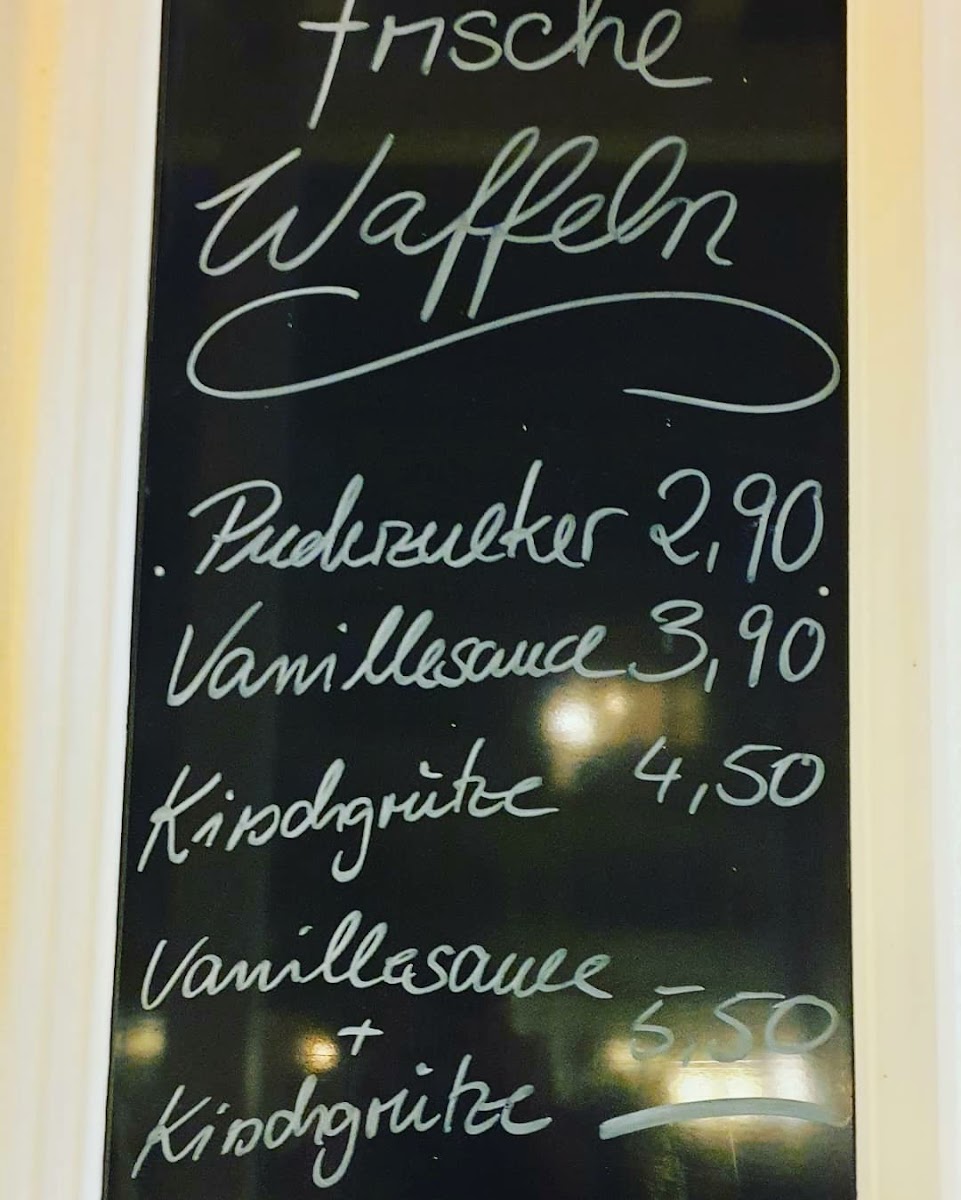 frische
Waffeln
Puderzucker 2,90
Vanillesauce 3,90
Kirschgrütze 4,50
Vanillesauce
+ 5,50
Kirschgrütze